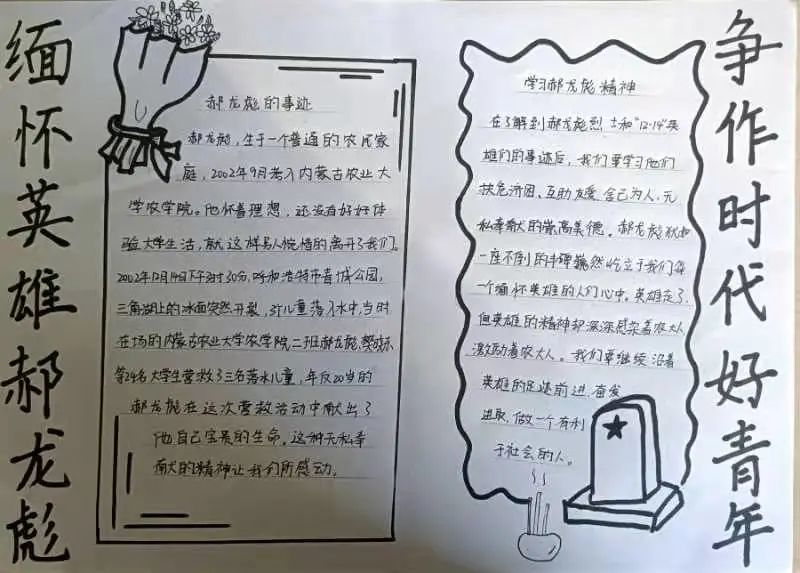 缅怀英雄郝龙彪
郝龙彪的事迹
郝龙彪,生于一个普通的农民家
庭,2002年9月考入内蒙古农业大
学农学院。他怀着理想,还没有好好体
验大学生活,就这样另人惋惜的离开了我们。
2002年12月14日下午2时30分,呼和浩特市青城公园,
三角湖上的冰面突然开裂,3个儿童落入水中,当时
在场的内蒙古农业大学农学院二班郝龙彪、樊
等24名大学生营救了三名落水儿童,年仅20岁的
郝龙彪在这次营救活动中献出了
他自己宝贵的生命。这种无私奉
献的精神让我们所感动。
学习郝龙彪精神
在了解到郝龙彪烈士和"12·14"英
雄们的事迹后,我们要学习他们
扶危济困、互助友爱、舍己为人、无
私奉献的崇高美德。郝龙彪犹如
一座不倒的丰碑巍然屹立于我们每
一个缅怀英雄的人们心中。英雄走了,
但英雄的精神却深深感染着农大人
激励着农大人。我们要继续沿着
英雄的足迹前进,奋发
进取,做一个有利
于社会的人。
争作时代好青年